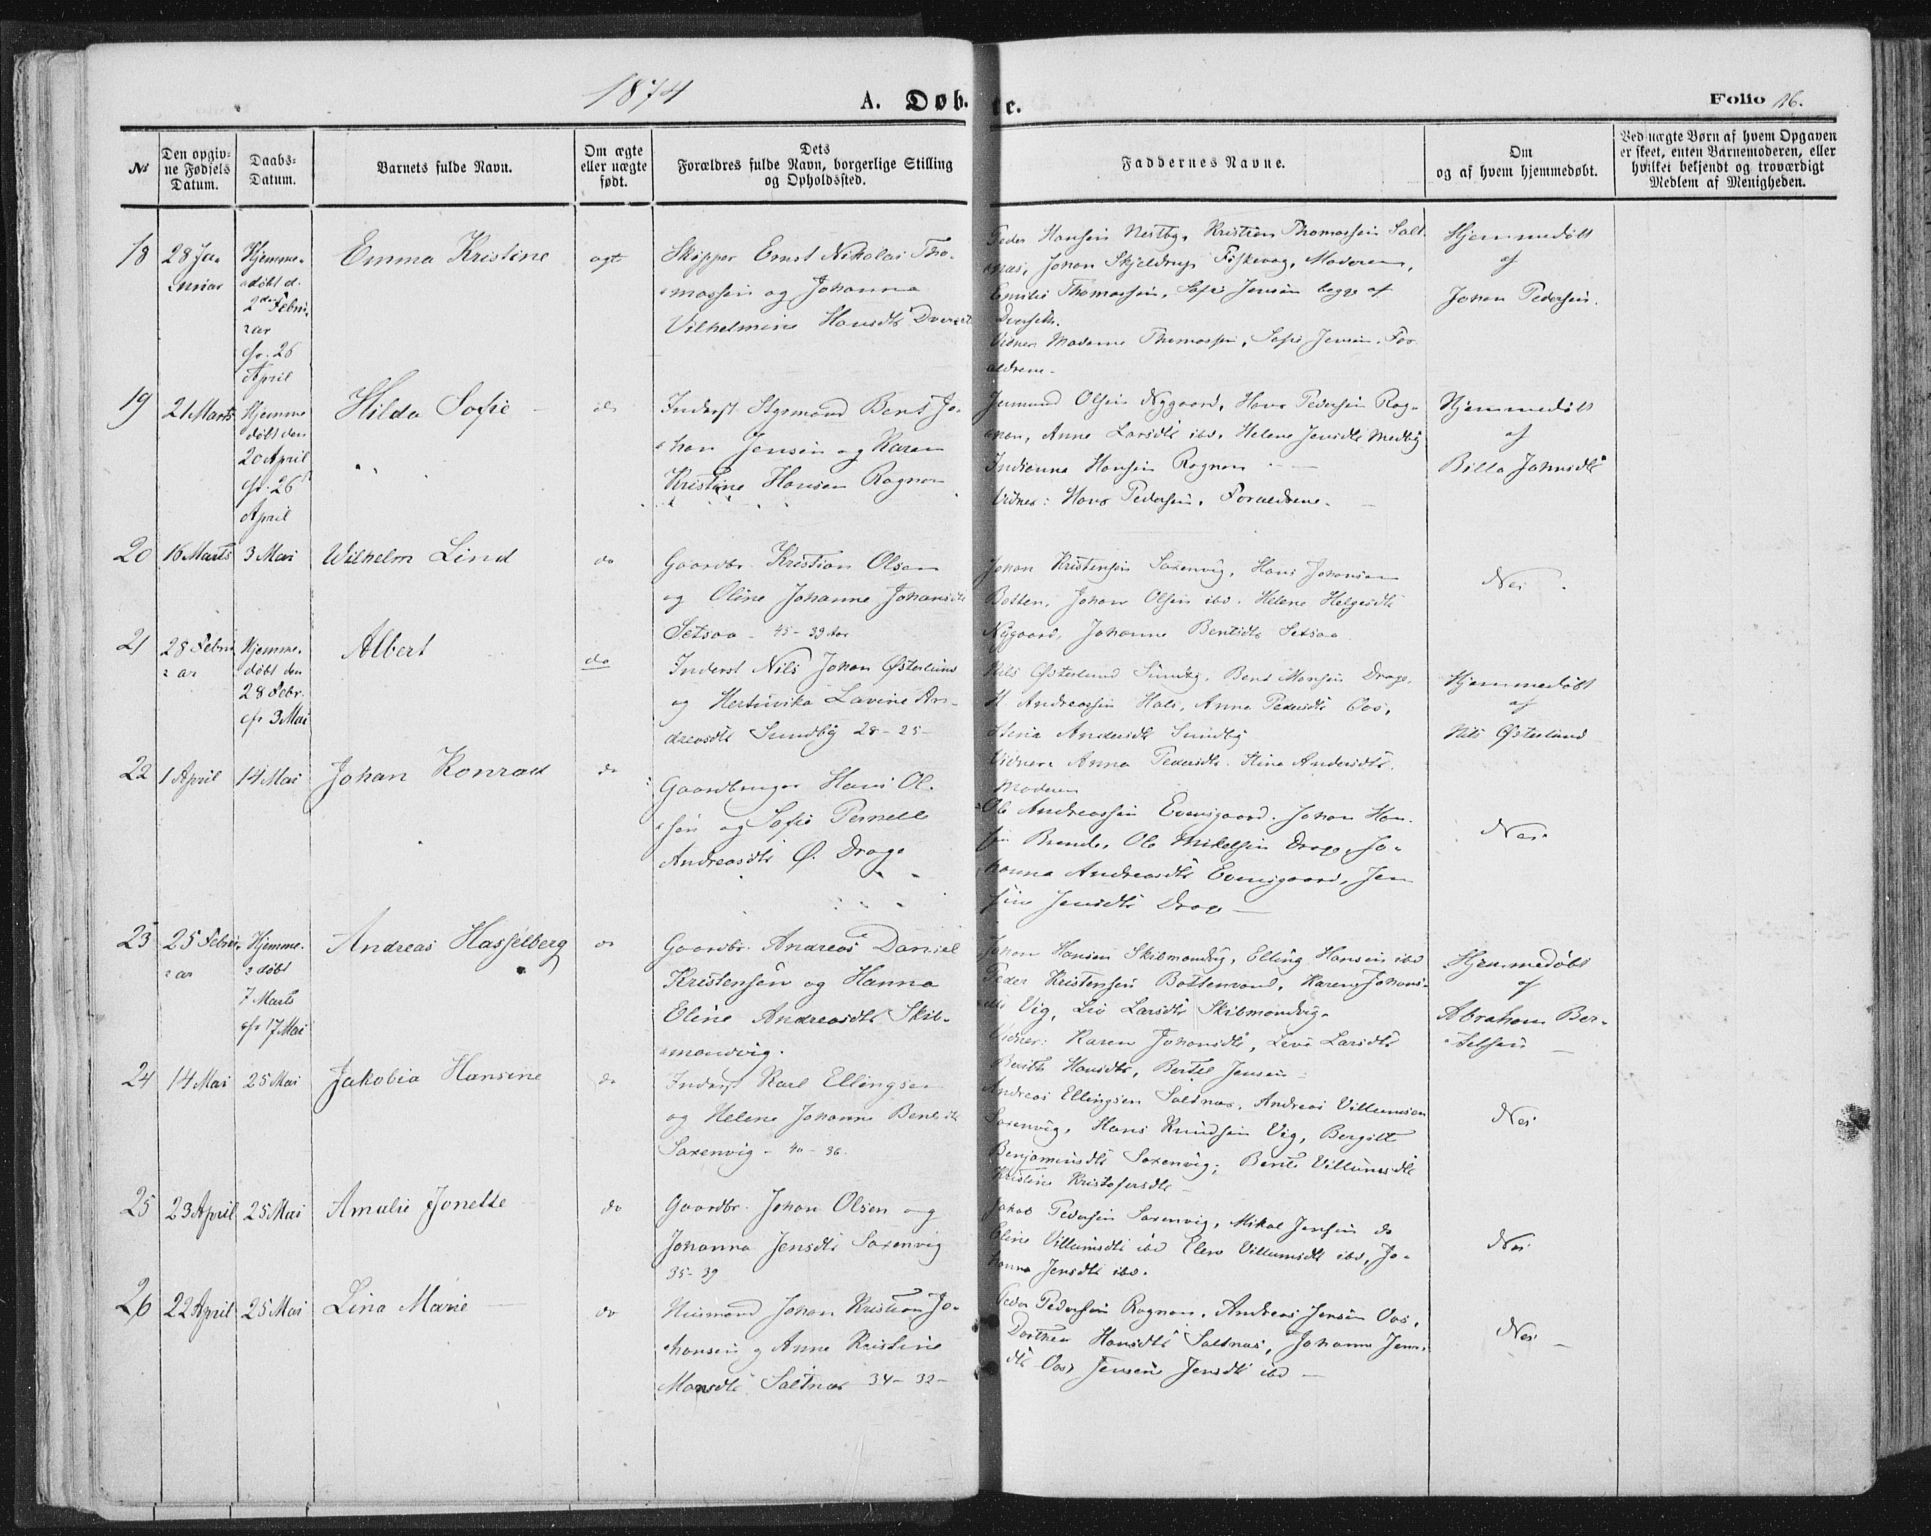 1874
A. Døbte.
Folio 16.
No
Den opgivne Fødsels Datum.
Daabs-Datum.
Barnets fulde Navn.
Om ægte eller uægte født.
Dets Forældres fulde Navn, borgerlige Stilling og Opholdssted.
Faddernes Navne.
Om og af hvem hjemmedøbt.
Ved uægte Børn af hvem Opgaven er skeet, enten Barnemoderen, eller hvilket bekjendt og troværdigt Medlem af Menigheden.
18
28 Ja-
nuar
Hjemme-
døbt d.
2den Febru-
ar
fr. 26
April
Emma Kristine
ægte
Skipper Ernst Nikolai Tho-
massen og Johanna
Vilhelmine Hansdtr Dverset
Peder Hansen Nestby, Kristian Thomassen Salt-
næs, Johan Skjeldrup Fiskevog, Moderen,
Emilie Thomassen, Sofie Jensen begge af
Dverseth.
Vidner Madame Thomassen, Sofie Jensen, For-
ældrene.
Hjemmedøbt
af
Johan Pedersen.
19
21 Marts
Hjemme
døbt den
20 April
fr. 26
April
Hilda Sofie
do
Inderst Styrmand Bent Jo-
han Jensen og Karen
Kristine Hansen Rognan
Olsen Nygaard, Hans Pedersen Rog-
nan, Anne Larsdtr ibd. Helene Jensdtr Medby
Indianna Hansen Rognan
Vidner: Hans Pedersen, Forældrene.
Hjemmedøbt
af
Billa Johnsdtr
20
16 Marts
3 Mai
Wilhelm Lind
do
Gaardbr. Kristian Olsen
og Oline Johanne Johansdtr
Setsaa - 45-39 Aar
Johan Kristensen Saxenvig, Hans Johansen
Botten, Johan Olsen ibd. Helene Helgesdtr
Nygaard, Johanne Bentsdtr Setsaa
Nei
21
28 Febru-
ar
Hjemme-
døbt den
28 Febr.
fr 3 Mai
Albert
do
Inderst Nils Johan Østerlund
og Hertuvika Lavine An-
dreasdtr Sundby 28-25-
Nils Østerlund Sundby, Bent Monsen Drage,
H. Andreassen Hals, Anna Pedersdtr Oos,
Stina Andersdt Sundby
Vidner Anna Pedersdtr. Stina Andersdtr.
Moderen
Hjemmedøbt
af
Nils Østerlund
22
1 April
14 Mai
Johan Konrad
do
Gaardbruger Hans Ol-
sen og Sofie Pernelle
Andreasdtr Ø. Drage
Ole Andreassen Evensgaard. Johan Han-
sen Ole Mikelsen Drage, Jo-
hanna Andreasdtr Evensgaard, Jen-
sine Jensdtr Drage
Nei
23
25 Febru-
ar
Hjemme-
døbt
7 Marts
fr 17 Mai
Andreas Hasselberg
do
Gaardbr. Andreas Daniel
Kristensen og Hanna
Eline Andreasdtr Skib-
mandvig.
Johan Hansen Skibmandvig, Elling Hansen ibd
Peder Kristensen Bottenvand, Karen Johans-
dtr Vig, Larsdtr Skibmandvig.
Vidner: Karen Johansdtr, Larsdtr
Hansdtr, Bertel Jensen
Hjemmedøbt
af
Abraham Ber-
telsen
24
14 Mai
25 Mai
Jakobia Hansine
do
Inderst Karl Ellingsen
og Helene Johanne Bentsdtr
Saxenvig - 40-36.
Andreas Ellingsen Saltnæs, Andreas Villumsen
Saxenvig, Hans Knudsen Vig, Bergitte
Benjaminsdtr Saxenvig, Villumsdtr
Kristine Kristofersdtr
Nei
25
23 April
25 Mai
Amalie Jonette
do
Gaardbr. Johan Olsen og
Johanna Jensdtr Saxenvig
35-39
Jakob Pedersen Saxenvig, Mikal Jensen do
Eline Villumsdtr ibd Villumsdtr ibd, Jo-
hanna Jensdtr ibd.
Nei
26
22 April
25 Mai
Lina Marie
do
Huusmand Johan Kristian Jo-
hansen og Anne Kristine
Monsdtr Saltnæs 34-32-
Peder Pedersen Rognan, Andreas Jensen Oos,
Dorthea Hansdtr Saltnæs, Johanna Jens-
dtr Oos, Jensine Jensdtr ibd
Nei